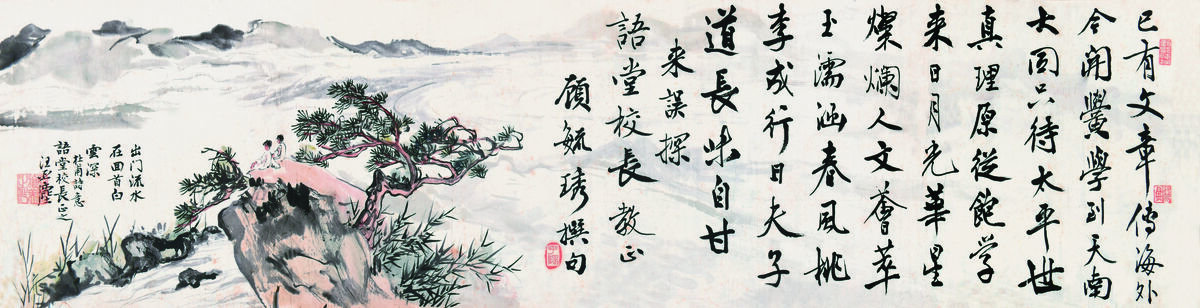 已有文章傳海外
今開黌學到天南
大同只待太平世
真理原從飽學
来日月光華星
燦爛人文薈萃
玉濡涵春風桃
李成行日夫子
道長味自甘
来誤探
語堂校長教正
顧毓琇撰句
出門流水
回首白
雲
杜甫詩意
語堂校長正之
汪亞塵